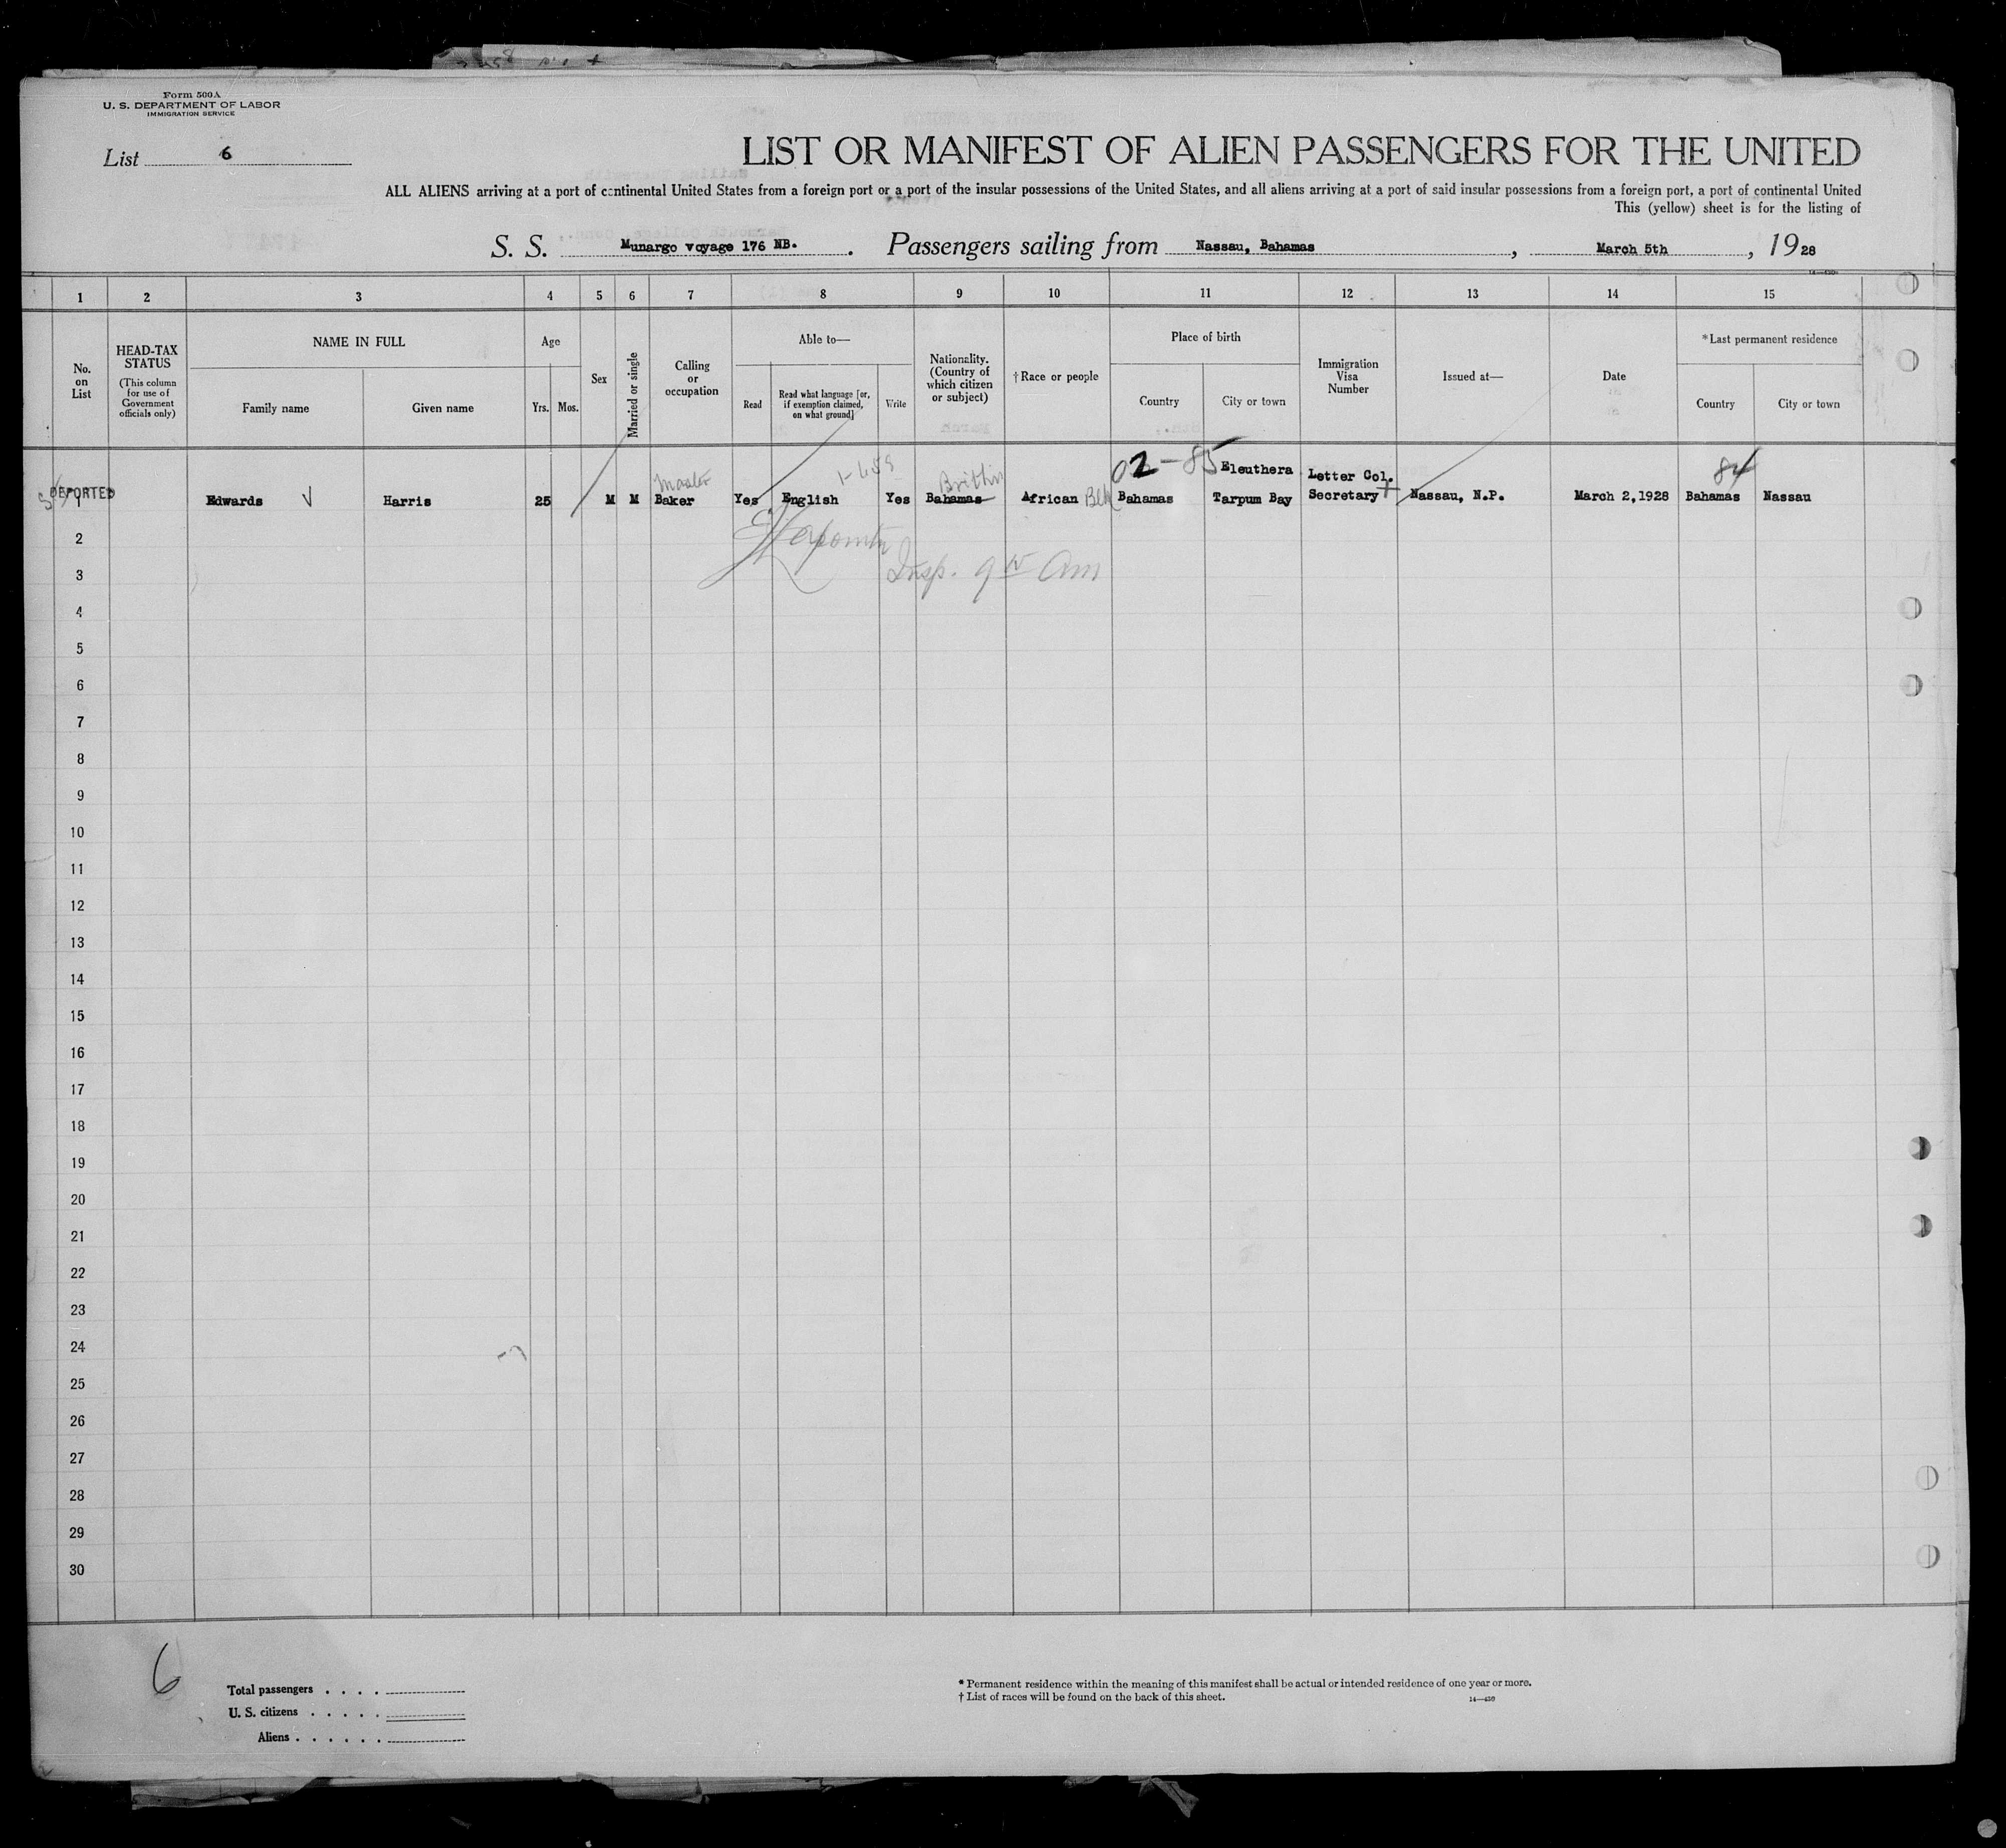 Form 500A
U. S. DEPARTMENT OF LABOR
IMMIGRATION SERVICE
List 6
LIST OR MANIFEST OF ALIEN PASSENGERS FOR THE UNITED
ALL ALIENS arriving at a port of continental United States from a foreign port or a port of the insular possessions of the United States, and all aliens arriving at a port of said insular possessions from a foreign port, a port of continental United
This (yellow) sheet is for the listing of
S. S. Munargo voyage 176 NB. Passengers sailing from Nassau, Bahamas, March 5th, 1928
1 2 3 4 5 6 7 8 9 10 11 12 13 14 15
No. on List
HEAD-TAX STATUS
(This column for use of Government officials only)
NAME IN FULL
Family name Given name
Age
Yrs. Mos.
Sex
Married or single
Calling or occupation
Able to—
Read
Read what language [or, if exemption claimed, on what ground]
Write
Nationality. (Country of which citizen or subject)
†Race or people
Place of birth
Country City or town
Immigration Visa Number
Issued at—
Date
*Last permanent residence
Country City or town
02-85 Eleuthera Letter Col. 84
DEPORTED
1 Edwards Harris 25 M M Baker Yes English Yes Bahamas African Bahamas Tarpum Bay Secretary Nassau, N.P. March 2, 1928 Bahamas Nassau
2
Insp. Am
3
4
5
6
7
8
9
10
11
12
13
14
15
16
17
18
19
20
21
22
23
24
25
26
27
28
29
30
6
Total passengers . . . .
U. S. citizens . . . . .
Aliens . . . . . .
* Permanent residence within the meaning of this manifest shall be actual or intended residence of one year or more.
† List of races will be found on the back of this sheet.
14—430